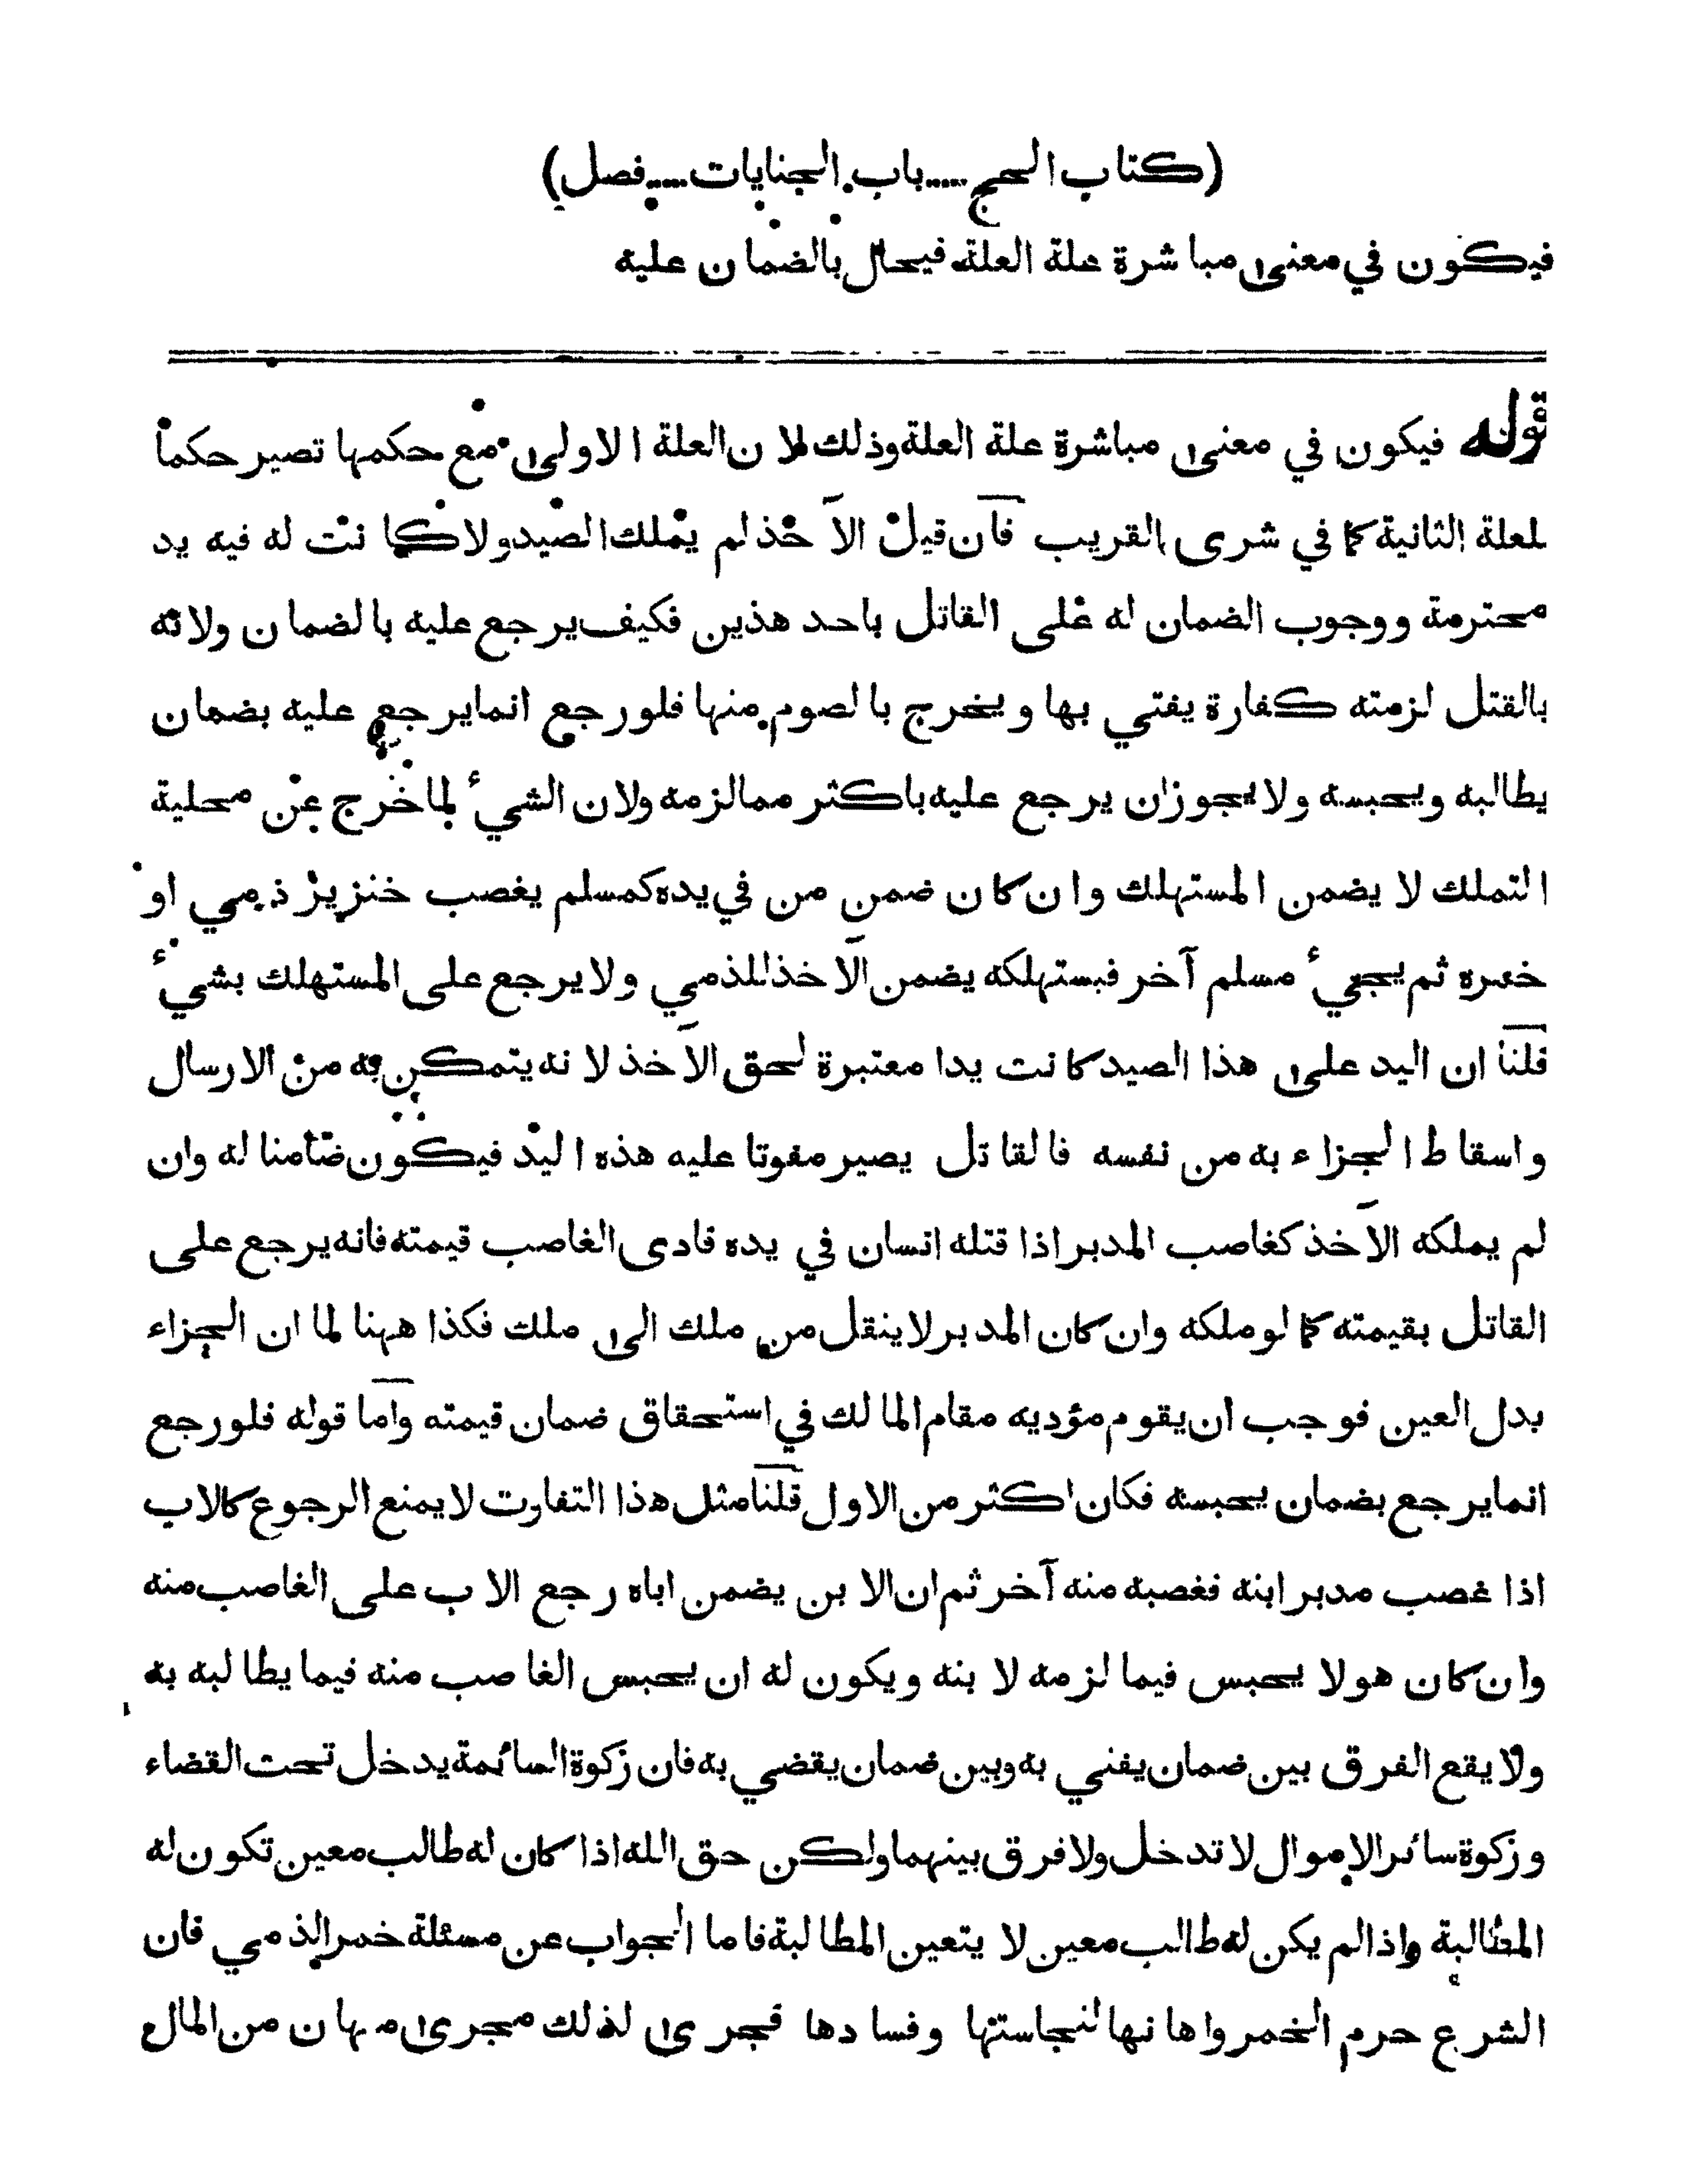 (كتاب الحج.....باب الجنايات.....فصل)
فيكون في معنى مباشرة علة العلة فيحال بالضمان عليه
قوله فيكون في معنى مباشرة علة العلة وذلك لان العلة الاولى مع حكمها تصير حكما
لعلة الثانية كما في شرى القريب فان قيل الآخذ لم يملك الصيد ولا كانت له فيه يد
محترمة ووجوب الضمان له على القاتل باحد هذين فكيف يرجع عليه بالضمان ولانه
بالقتل لزمته كفارة يفتي بها ويخرج بالصوم منها فلو رجع انما يرجع عليه بضمان
يطالبه ويحبسه ولا يجوز ان يرجع عليه باكثر مما لزمه ولان الشيء لما خرج عن محلية
التملك لا يضمن المستهلك وان كان ضمن من في يده كمسلم يغصب خنزير ذمي او
خمره ثم يجيء مسلم آخر فيستهلكه يضمن الآخذ للذمي ولا يرجع على المستهلك بشيء
قلنا ان اليد على هذا الصيد كانت يدا معتبرة لحق الآخذ لانه يتمكن به من الارسال
واسقاط الجزاء به من نفسه فالقاتل يصير مفوتا عليه هذه اليد فيكون ضامنا له وان
لم يملكه الآخذ كغاصب المدبر اذا قتله انسان في يده فادى الغاصب قيمته فانه يرجع على
القاتل بقيمته كما لو ملكه وان كان المدبر لا ينقل من ملك الى ملك فكذا ههنا لما ان الجزاء
بدل العين فوجب ان يقوم مؤديه مقام المالك في استحقاق ضمان قيمته واما قوله فلو رجع
انما يرجع بضمان يحبسه فكان اكثر من الاول قلنا مثل هذا التفاوت لا يمنع الرجوع كالاب
اذا غصب مدبر ابنه فغصبه منه آخر ثم ان الابن يضمن اباه رجع الاب على الغاصب منه
وان كان هو لا يحبس فيما لزمه لابنه ويكون له ان يحبس الغاصب منه فيما يطالبه به
ولا يقع الفرق بين ضمان يفتي به وبين ضمان يقضي به فان زكوة السائمة يدخل تحت القضاء
وزكوة سائر الاموال لا تدخل ولا فرق بينهما ولكن حق الله اذا كان له طالب معين تكون له
المطالبة واذا لم يكن له طالب معين لا يتعين المطالبة فاما الجواب عن مسئلة خمر الذمي فان
الشرع حرم الخمر واهانها لنجاستها وفسادها فجرى لذلك مجرى مهان من المال